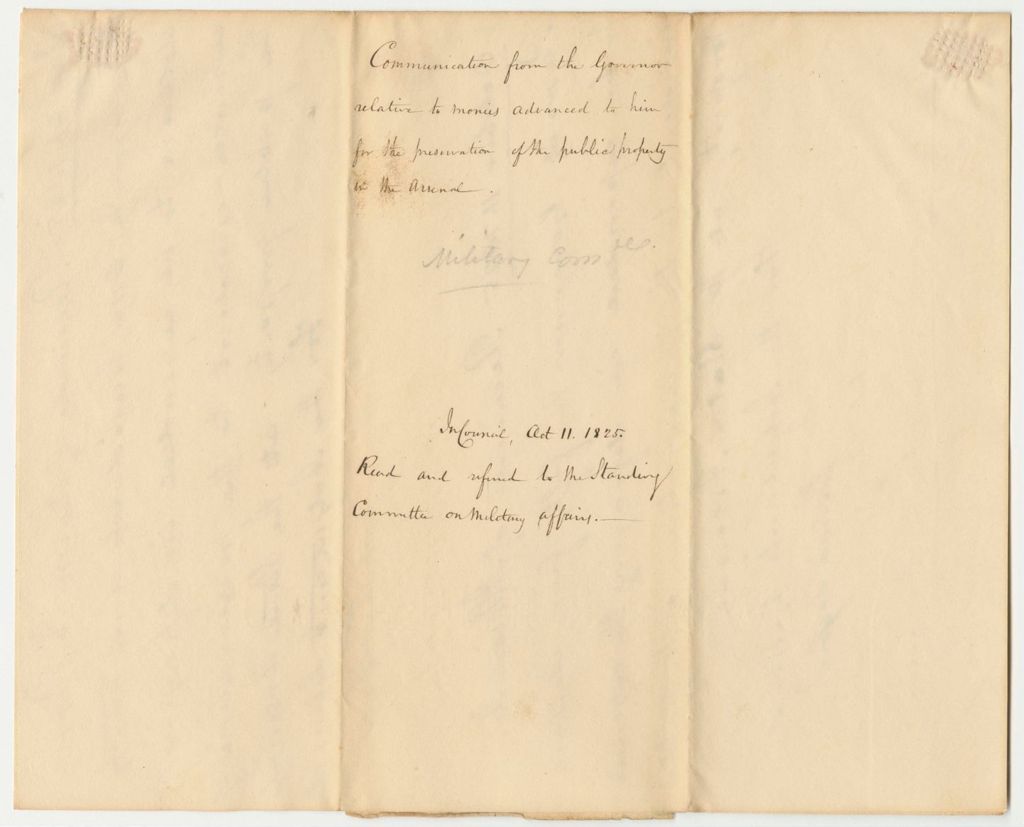 Communication from the Governor
relative to monies advanced to him
for the preservation of the public property
in the Arsenal.
Military Com
In Council, Oct 11. 1825.
Read and referred to the Standing
Committee on Military affairs.